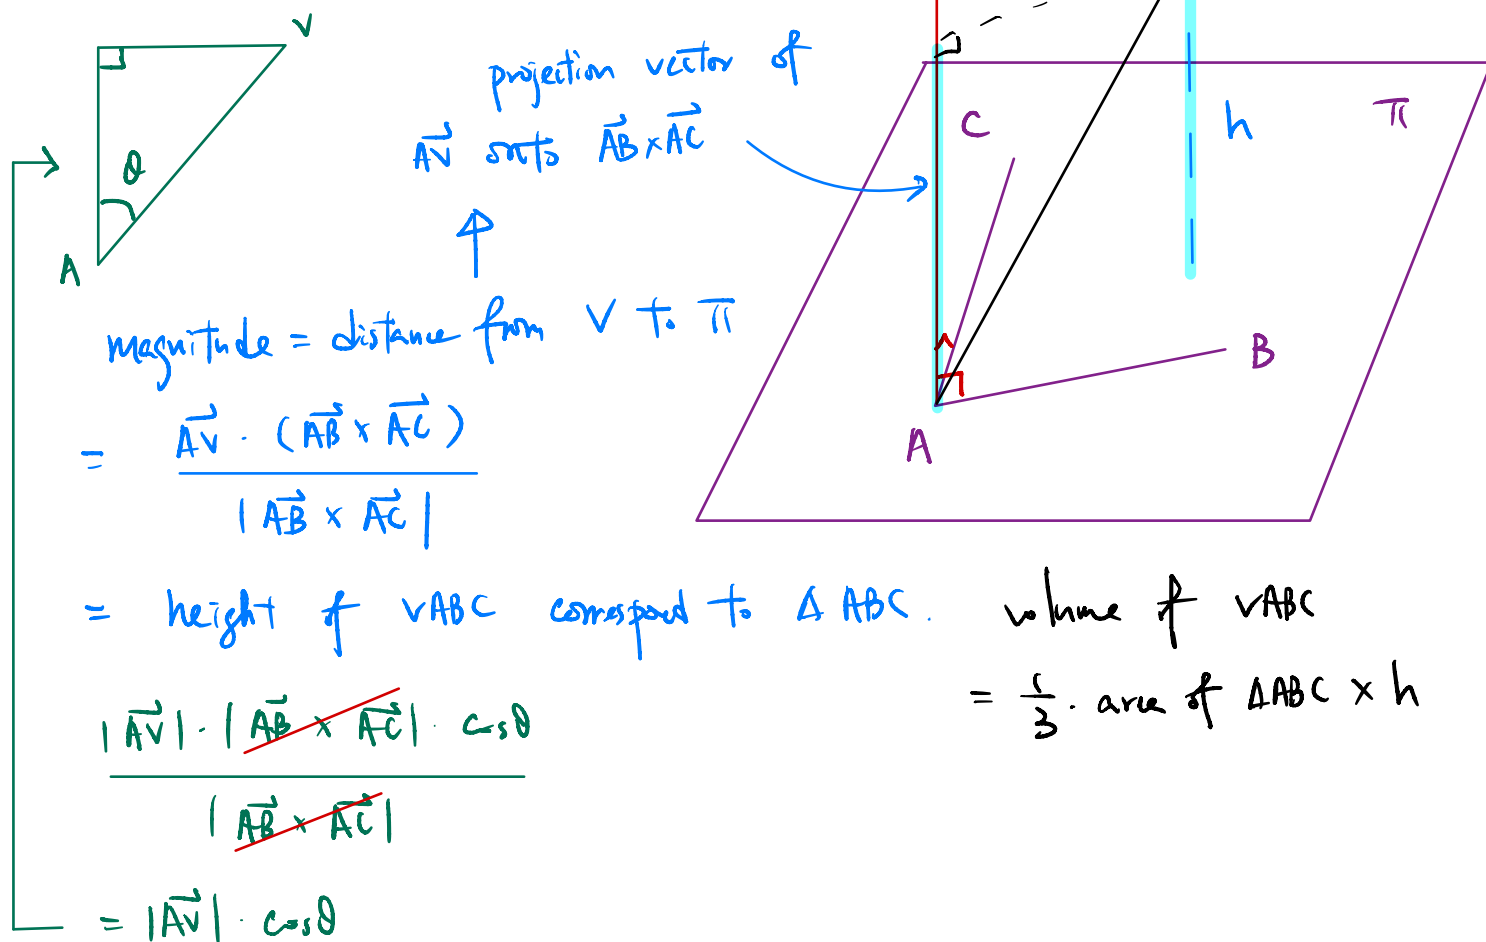 V
θ
A
projection vector of
$\overrightarrow{AV}$ onto $\overrightarrow{AB} \times \overrightarrow{AC}$
magnitude = distance from V to π
= $\frac{\overrightarrow{AV} \cdot (\overrightarrow{AB} \times \overrightarrow{AC})}{|\overrightarrow{AB} \times \overrightarrow{AC}|}$
= height of VABC correspond to Δ ABC.
$\frac{|\overrightarrow{AV}| \cdot |\overrightarrow{AB} \times \overrightarrow{AC}| \cdot \cos θ}{|\overrightarrow{AB} \times \overrightarrow{AC}|}$
= $|\overrightarrow{AV}| \cdot \cos θ$
C
h
π
B
A
volume of VABC
= $\frac{1}{3}$ · area of ΔABC × h